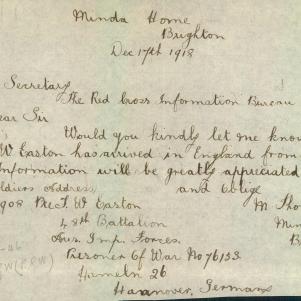 Minda Home
Brighton
Dec 17th 1918
Secretary
The Red Cross Information Bureau
ear Sir
Would you kindly let me know
W Easton has arrived in England from
Information will be greatly appreciated
oldiers address, and Oblige
908 Pte J. W Easton M Tho
48th Battalion Min
Aus. Imp. Forces. B
Prisoner Of War No 76133
Hameln 26
Hannover, Germany